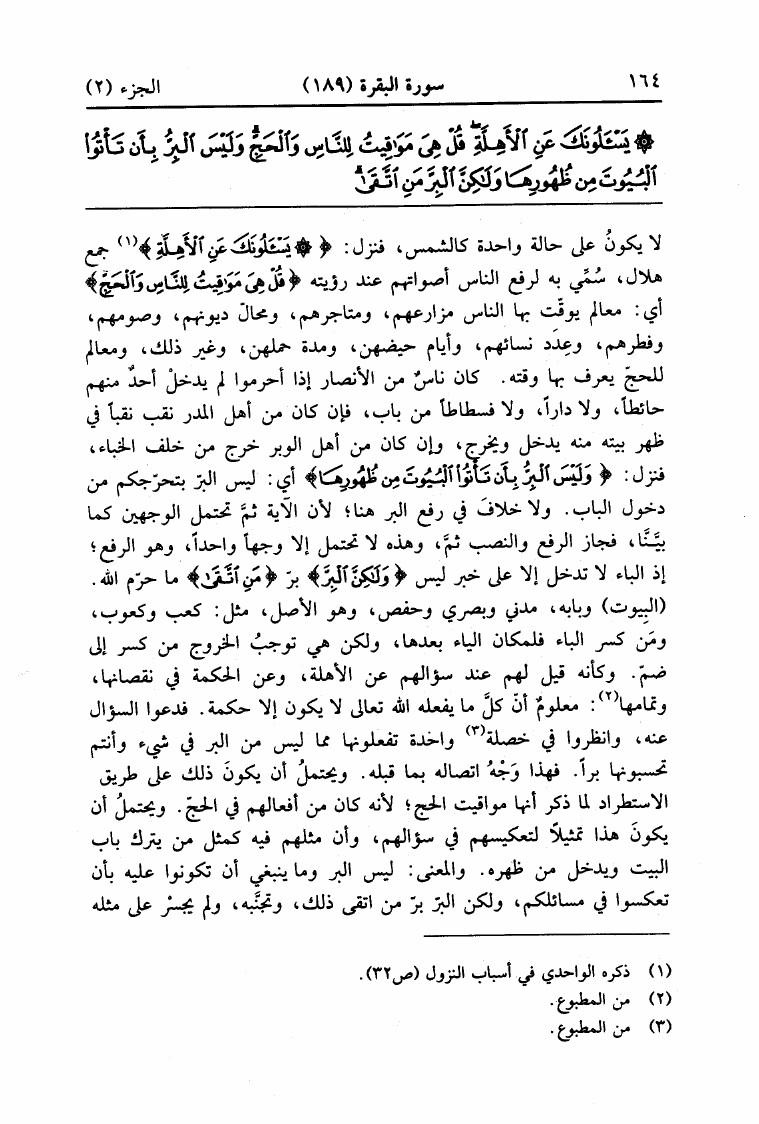 ١٦٤ سورة البقرة (١٨٩) الجزء (٢)
۞ يَسْـَٔلُونَكَ عَنِ ٱلْأَهِلَّةِۖ قُلْ هِىَ مَوَٰقِيتُ لِلنَّاسِ وَٱلْحَجِّۗ وَلَيْسَ ٱلْبِرُّ بِأَن تَأْتُوا۟
ٱلْبُيُوتَ مِن ظُهُورِهَا وَلَٰكِنَّ ٱلْبِرَّ مَنِ ٱتَّقَىٰۗ
لا يكونُ على حالة واحدة كالشمس، فنزل: ﴿ ۞ يَسْـَٔلُونَكَ عَنِ ٱلْأَهِلَّةِ ﴾(١) جمع
هلال، سُمِّي به لرفع الناس أصواتهم عند رؤيته ﴿ قُلْ هِىَ مَوَٰقِيتُ لِلنَّاسِ وَٱلْحَجِّ ﴾
أي: معالم يوقّت بها الناس مزارعهم، ومتاجرهم، ومحالّ ديونهم، وصومهم،
وفطرهم، وعِدَد نسائهم، وأيام حيضهن، ومدة حملهن، وغير ذلك، ومعالم
للحجّ يعرف بها وقته. كان ناسٌ من الأنصار إذا أحرموا لم يدخلْ أحدٌ منهم
حائطاً، ولا داراً، ولا فسطاطاً من باب، فإن كان من أهل المدر نقب نقباً في
ظهر بيته منه يدخل ويخرج، وإن كان من أهل الوبر خرج من خلف الخباء،
فنزل: ﴿ وَلَيْسَ ٱلْبِرُّ بِأَن تَأْتُوا۟ ٱلْبُيُوتَ مِن ظُهُورِهَا ﴾ أي: ليس البرّ بتحرّجكم من
دخول الباب. ولا خلافَ في رفع البر هنا؛ لأن الآية ثمَّ تحتمل الوجهين كما
بيَّنَّا، فجاز الرفع والنصب ثمَّ، وهذه لا تحتمل إلا وجهاً واحداً، وهو الرفع؛
إذ الباء لا تدخل إلا على خبر ليس ﴿ وَلَٰكِنَّ ٱلْبِرَّ ﴾ برّ ﴿ مَنِ ٱتَّقَىٰ ﴾ ما حرّم الله.
(البيوت) وبابه، مدني وبصري وحفص، وهو الأصل، مثل: كعب وكعوب،
ومَن كسر الباء فلمكان الياء بعدها، ولكن هي توجبُ الخروج من كسر إلى
ضمّ. وكأنه قيل لهم عند سؤالهم عن الأهلة، وعن الحكمة في نقصانها،
وتمامها(٢): معلومٌ أنّ كلَّ ما يفعله الله تعالى لا يكون إلا حكمة. فدعوا السؤال
عنه، وانظروا في خصلة(٣) واحدة تفعلونها مما ليس من البر في شيء وأنتم
تحسبونها براً. فهذا وَجْهُ اتصاله بما قبله. ويحتملُ أن يكونَ ذلك على طريق
الاستطراد لما ذكر أنها مواقيت الحج؛ لأنه كان من أفعالهم في الحجّ. ويحتملُ أن
يكونَ هذا تمثيلاً لتعكيسهم في سؤالهم، وأن مثلهم فيه كمثل من يترك باب
البيت ويدخل من ظهره. والمعنى: ليس البر وما ينبغي أن تكونوا عليه بأن
تعكسوا في مسائلكم، ولكن البرّ برّ من اتقى ذلك، وتجنَّبه، ولم يجسرْ على مثله
(١) ذكره الواحدي في أسباب النزول (ص٣٢).
(٢) من المطبوع.
(٣) من المطبوع.